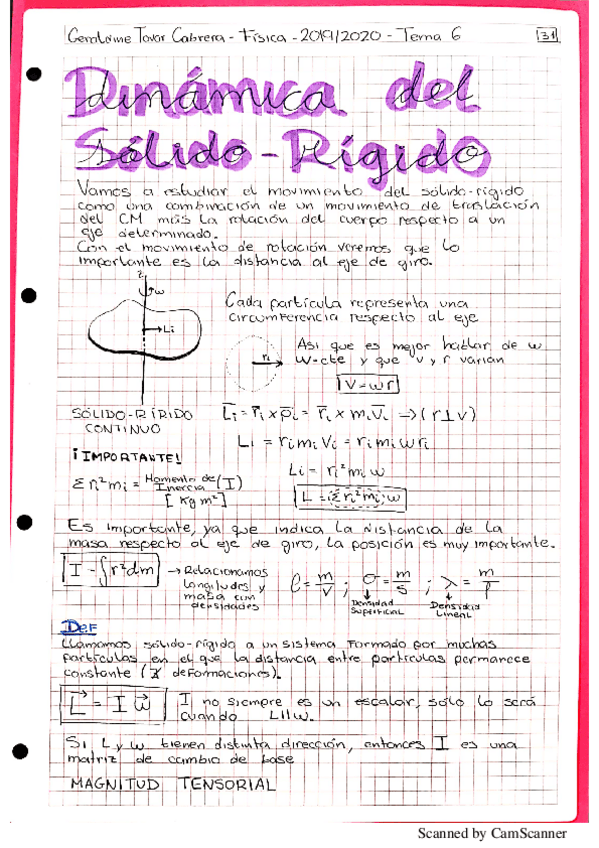 Geraldine Tovar Cabrera - Física - 2019/2020 - Tema 6
31
Dinámica del
Sólido-Rígido
Vamos a estudiar el movimiento del sólido-rígido
como una combinación de un movimiento de traslación
del CM más la rotación del cuerpo respecto a un
eje determinado.
Con el movimiento de rotación veremos que lo
importante es la distancia al eje de giro.
z
w
Li
Cada partícula representa una
circumferencia respecto al eje
ri
Asi que es mejor hablar de w
w=cte y que v y r varian
V=wr
SÓLIDO-RÍGIDO
CONTINUO
L̅i = r̅i x p̅i = r̅i x mi v̅i → (r⊥v)
Li = ri mi Vi = ri mi w ri
¡IMPORTANTE!
Li = ri² mi w
Σ ri² mi = Momento de Inercia (I)
[Kg m²]
L = (Σ ri² mi) w
Es importante, ya que indica la distancia de la
masa respecto al eje de giro, la posición es muy importante.
I = ∫r²dm
→ Relacionamos
longitudes y
masa con
densidades
ρ = m/V ; σ = m/S ; λ = m/l
Densidad
Superficial
Densidad
Lineal
Def
Llamamos sólido-rígido a un sistema formado por muchas
partículas en el que la distancia entre partículas permanece
constante (∄ deformaciones).
L⃗ = I w⃗
I no siempre es un escalar, sólo lo será
cuando L||w.
Si L y w tienen distinta dirección, entonces I es una
matriz de cambio de base
MAGNITUD TENSORIAL
Scanned by CamScanner